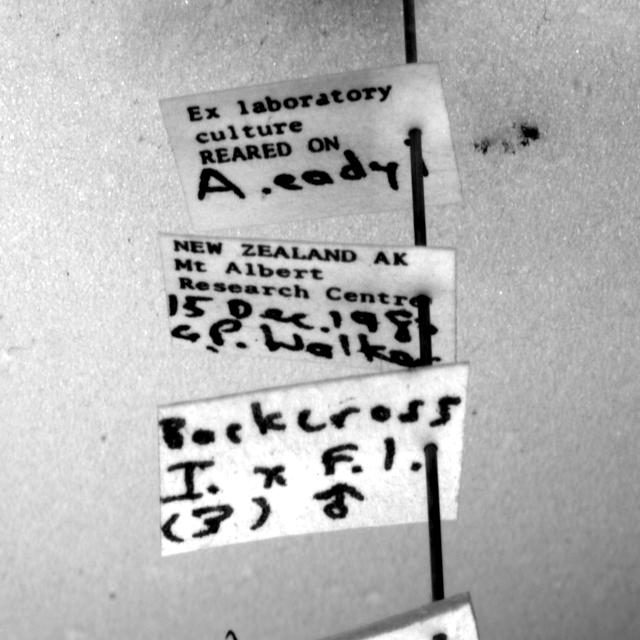 Ex laboratory
culture
REARED ON
A.eady
NEW ZEALAND AK
Mt Albert
Research Centre
15 Dec.198
G.P. Walker
Backcross
I. x F.1.
(3) ♂